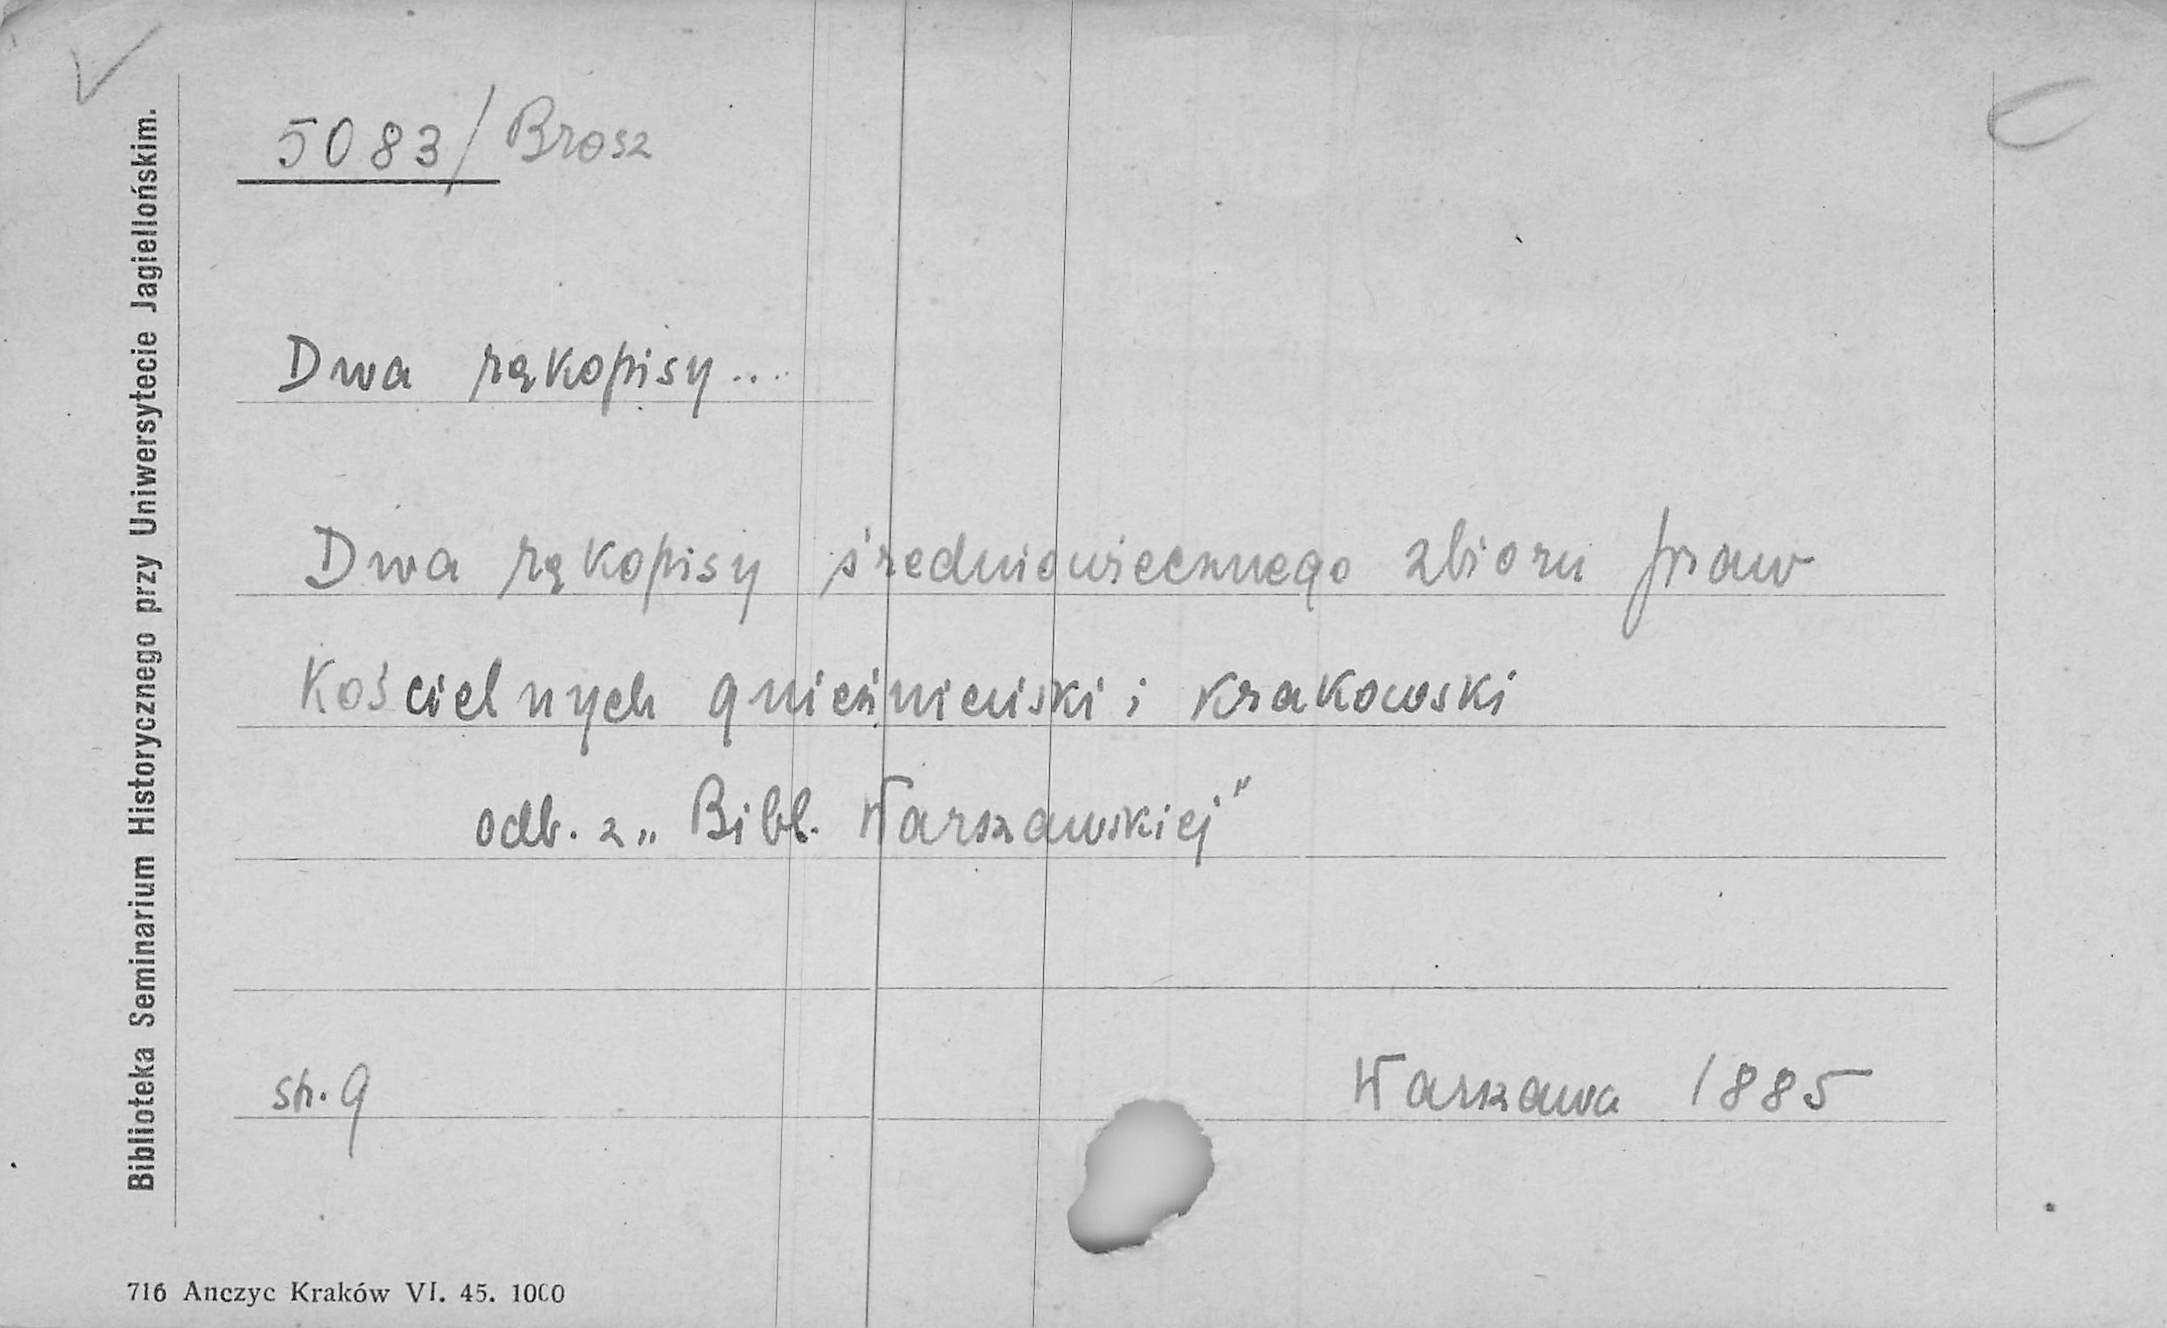 5083/Brosz
Dwa rękopisy....
Dwa rękopisy średniowiecznego zbioru praw
Kościelnych gnieźnieński i krakowski
odb. z „Bibl. Warszawskiej"
str. 9
Warszawa 1885
Biblioteka Seminarium Historycznego przy Uniwersytecie Jagiellońskim.
716 Anczyc Kraków VI. 45. 1000